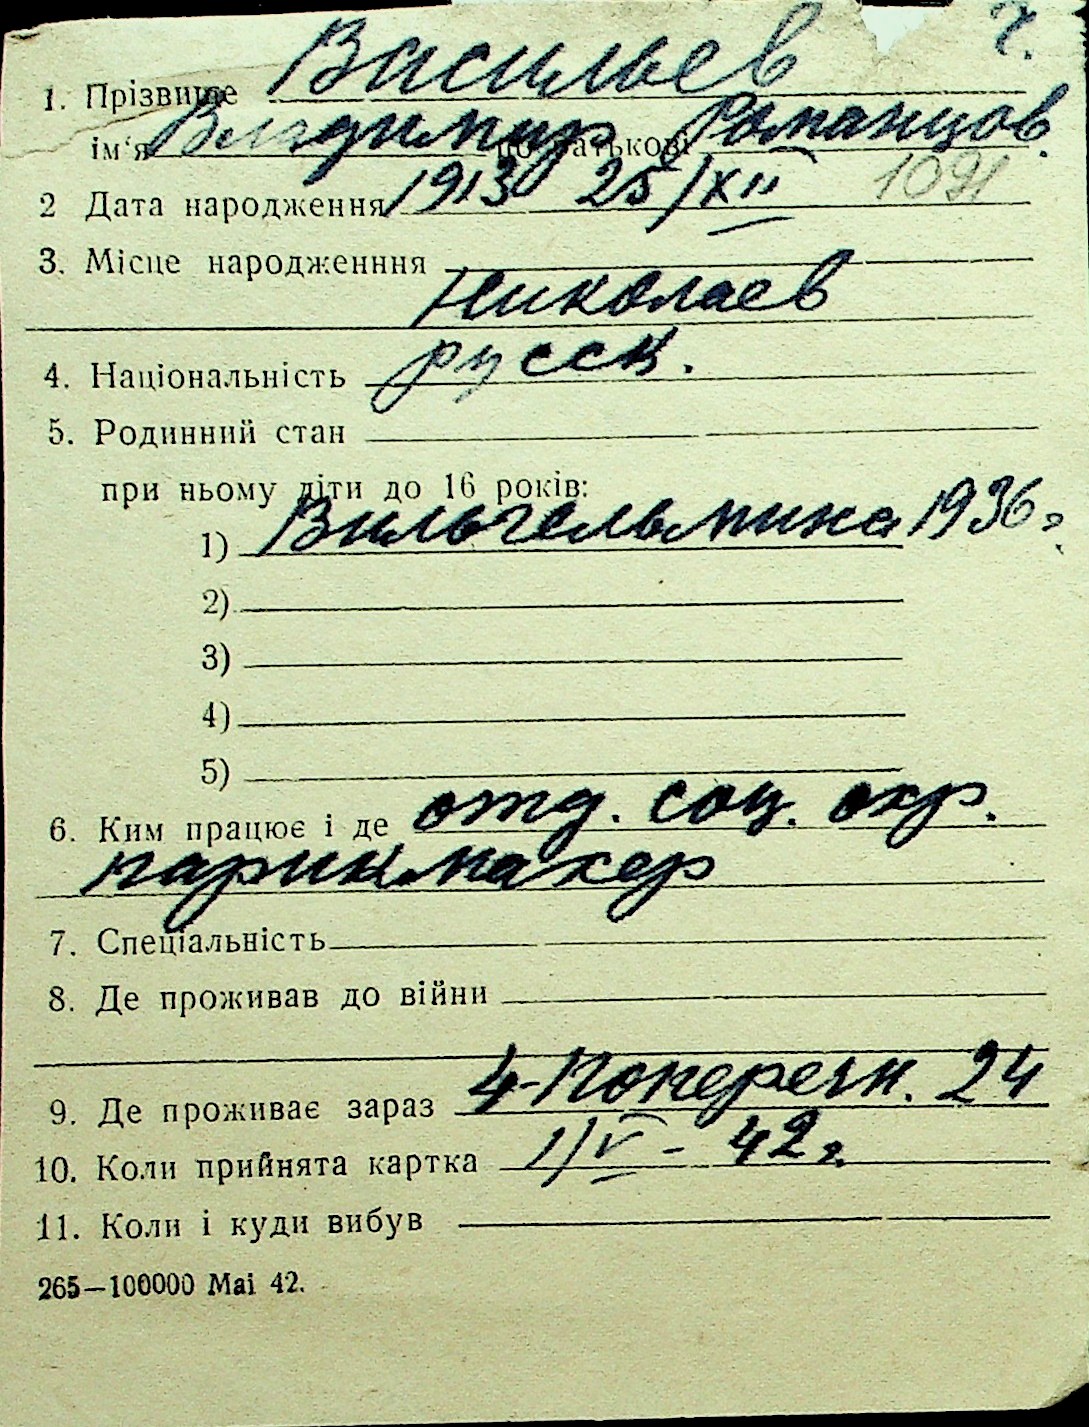 ч.
1. Прізвище Васильев
ім'я Владимир по батькові Романцов.
2 Дата народження 1913 25/XII 1091
3. Місце народженння
Николаев
4. Національність русск.
5. Родинний стан
при ньому діти до 16 років:
1) Вильгельмина 1936 г.
2)
3)
4)
5)
6. Ким працює і де отд. соц. окр.
парикмахер
7. Спеціальність
8. Де проживав до війни
9. Де проживає зараз 4-Поперечн. 24
10. Коли прийнята картка 1/V - 42 г.
11. Коли і куди вибув
265—100000 Маі 42.